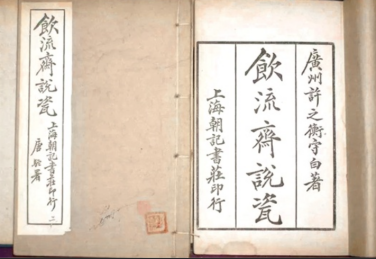 飲流齋說瓷
上海朝記書莊印行
廣州許之衡守白著
飲流齋說瓷
上海朝記書莊印行